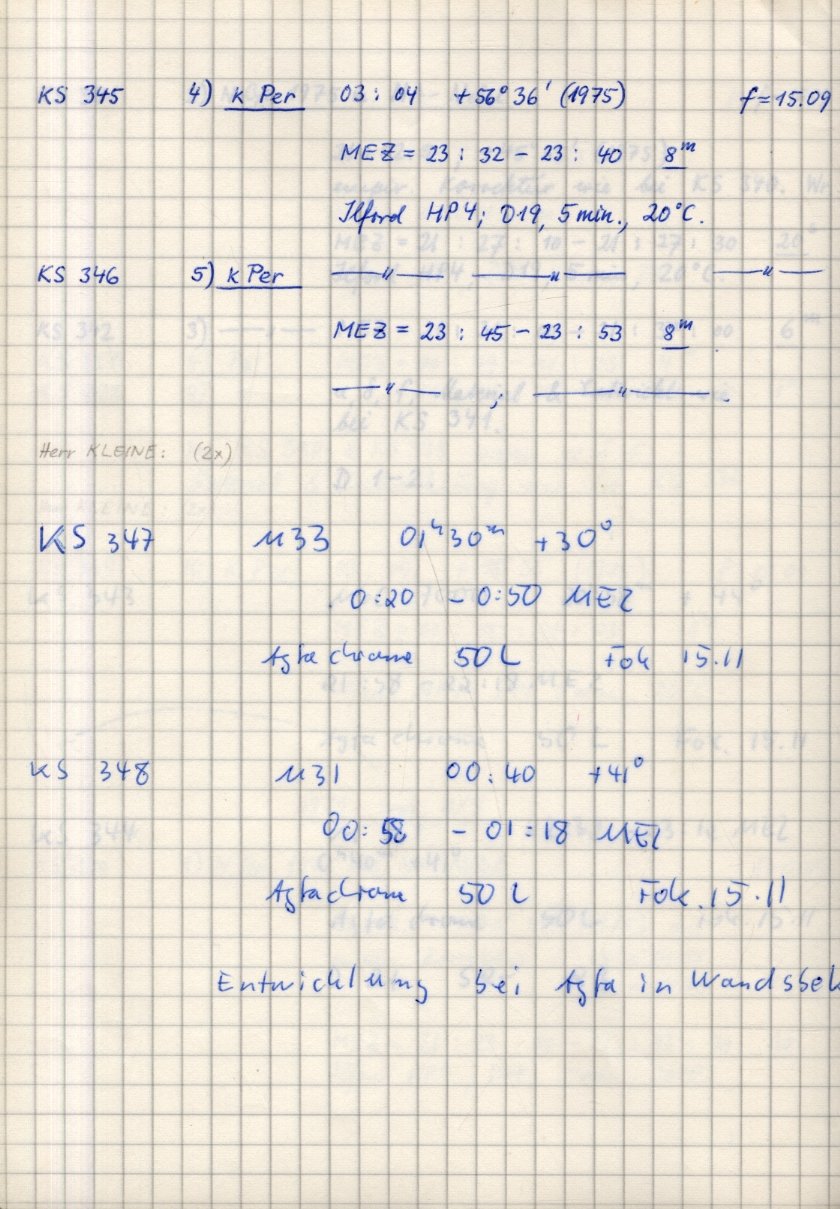 KS 345 4) k Per 03 : 04 +56° 36' (1975) f=15.09
MEZ = 23 : 32 – 23 : 40 8ᵐ
Ilford HP4; D19, 5 min., 20°C.
KS 346 5) k Per —〃— —〃— —〃—
MEZ = 23 : 45 – 23 : 53 8ᵐ
—〃— , —〃— .
Herr KLEINE: (2x)
KS 347 M33 01ʰ30ᵐ +30°
0:20 – 0:50 MEZ
Agfachrome 50L Fok 15.11
KS 348 M31 00:40 +41°
00:58 – 01:18 MEZ
Agfachrome 50L Fok. 15.11
Entwicklung bei Agfa in Wandsbek